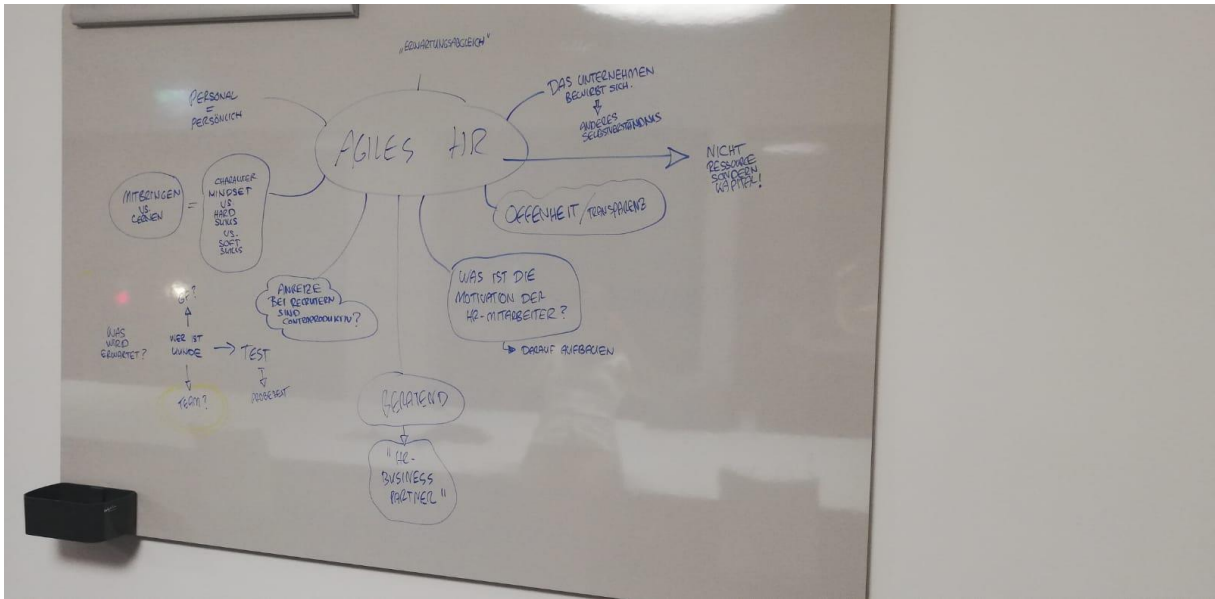 „ERWARTUNGSABGLEICH"
AGILES HR
PERSONAL
=
PERSÖNLICH
DAS UNTERNEHMEN
BEWIRBT SICH.
ANDERES
SELBSTVERSTÄNDNIS
NICHT
RESSOURCE
SONDERN
KAPITAL!
OFFENHEIT/TRANSPARENZ
MITBRINGEN
VS.
LERNEN
=
CHARAKTER
MINDSET
VS
HARD
SKILLS
VS.
SOFT
SKILLS
ANREIZE
BEI RECRUTERN
SIND
CONTRAPRODUKTIV?
WAS IST DIE
MOTIVATION DER
HR-MITARBEITER?
DARAUF AUFBAUEN
GF?
WAS
WIRD
ERWARTET?
WER IST
KUNDE
TEST
PROBEZEIT
TEAM?
BERATEND
"HR-
BUSINESS
PARTNER"